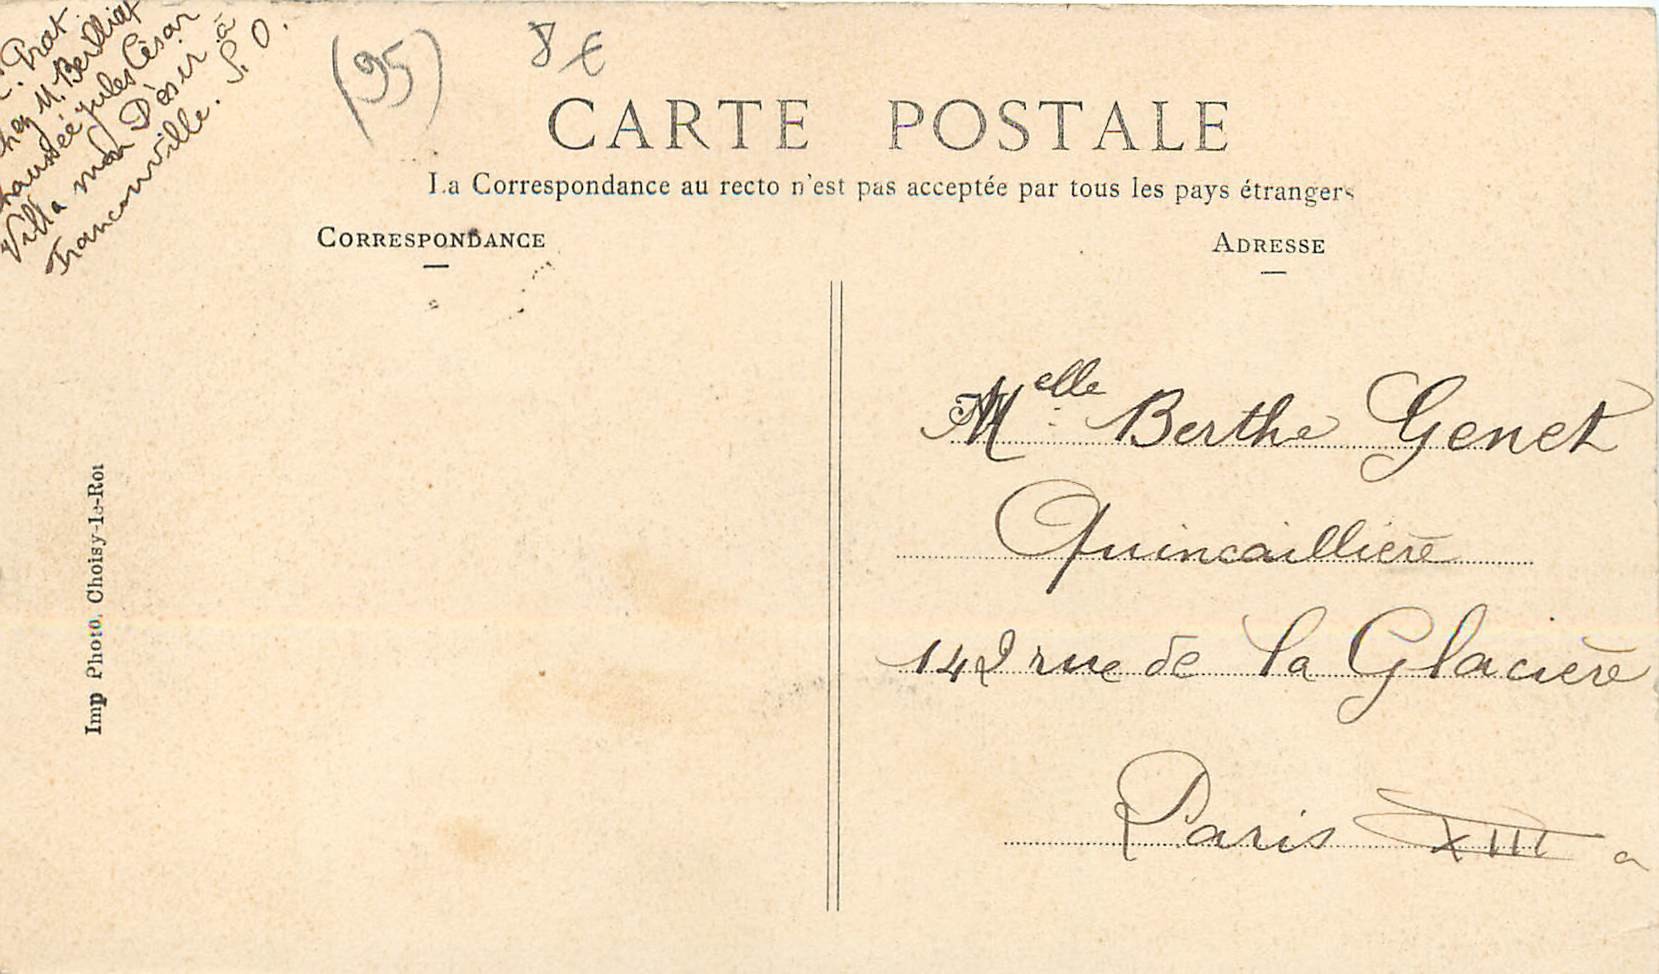 C. Prat
chez M. Berlliat
chaussée Jules César
Villa mon Désir à
Franconville. S. O.
(95)
8 €
CARTE POSTALE
La Correspondance au recto n'est pas acceptée par tous les pays étrangers
CORRESPONDANCE
ADRESSE
Melle Berthe Genet
Quincaillière
142 rue de la Glacière
Paris XIII
a
Imp Photo. Choisy-le-Roi